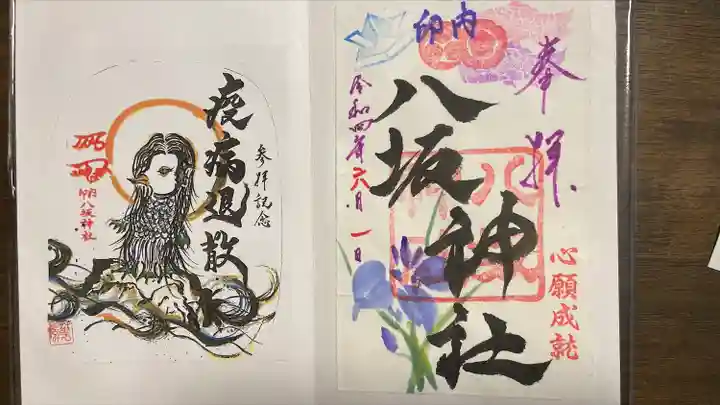 奉拝
印内
八坂神社
心願成就
令和四年六月一日
参拝記念
疫病退散
印八坂神社